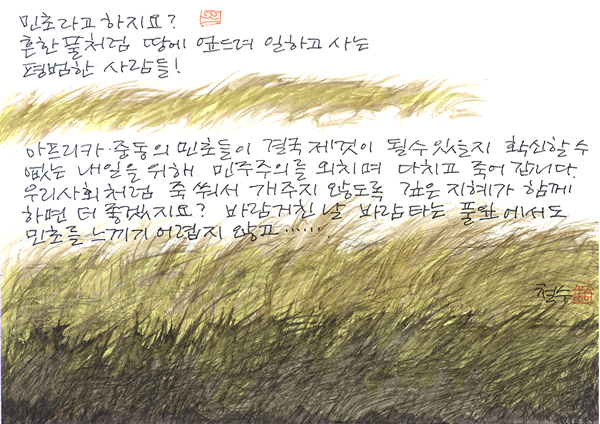 민초라고 하지요?
흔한 풀처럼 땅에 엎드려 일하고 사는
평범한 사람들!
아프리카·중동의 민초들이 결국 제것이 될수 있을지 확신할 수
없는 내일을 위해 민주주의를 외치며 다치고 죽어 갑니다.
우리사회처럼 죽 쒀서 개주지 않도록 깊은 지혜가 함께
하면 더 좋겠지요? 바람거친 날 바람타는 풀앞에서도
민초를 느끼기 어렵지 않고......
철수